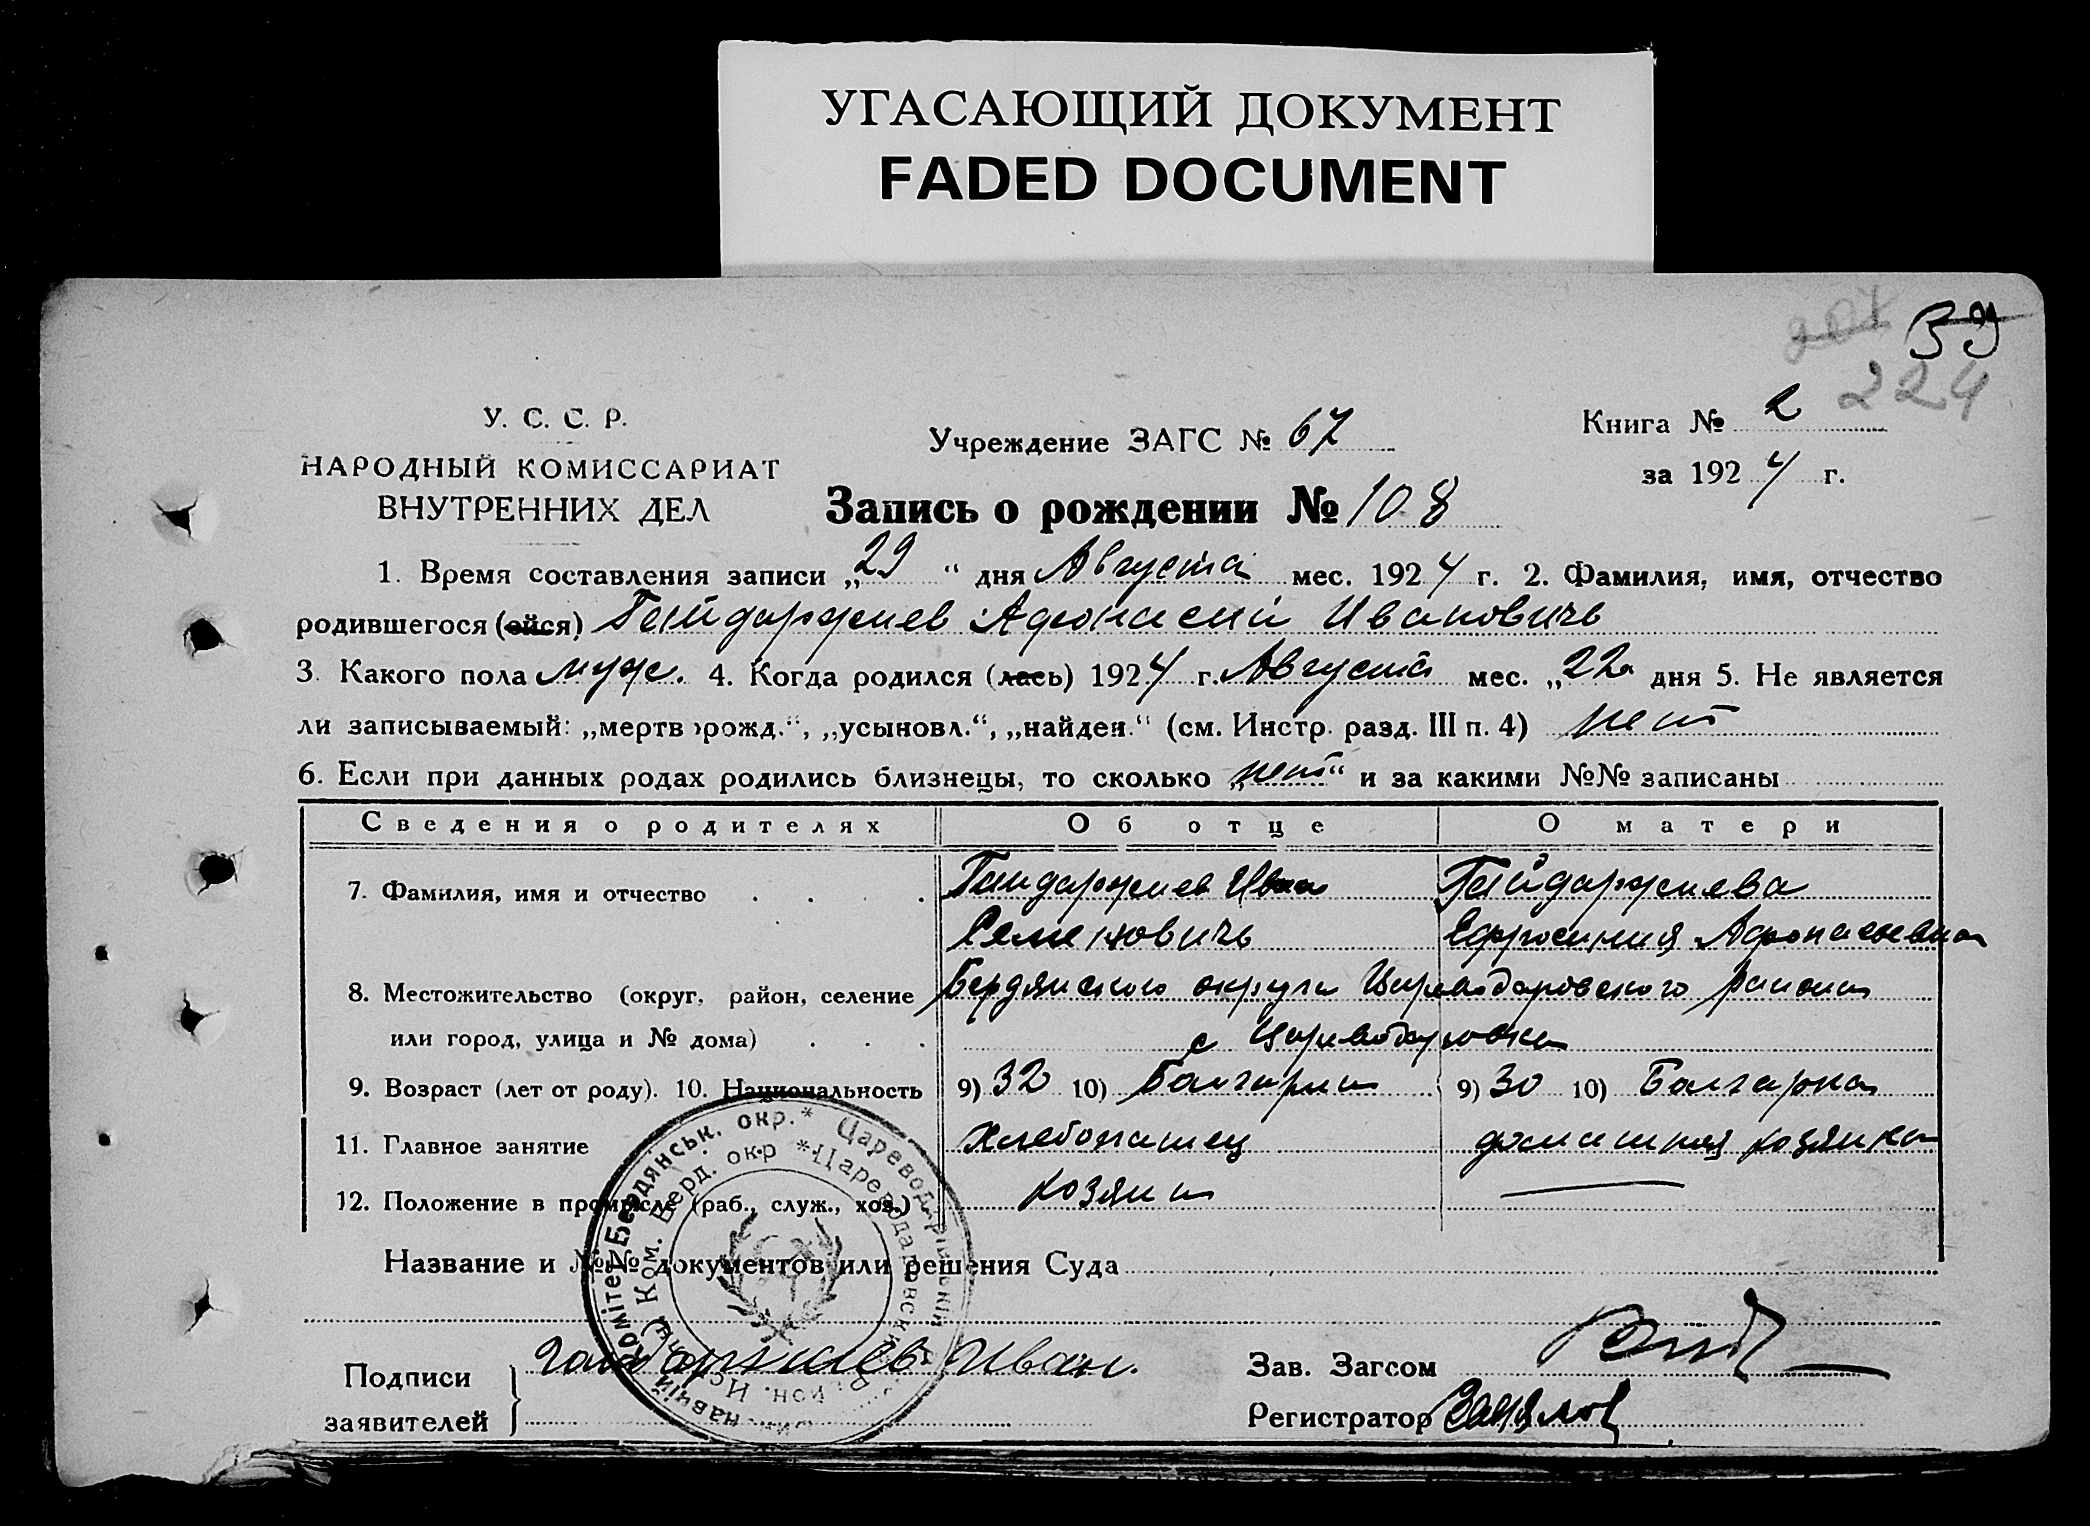 УГАСАЮЩИЙ ДОКУМЕНТ
FADED DOCUMENT
39
224
У. С. С. Р.
НАРОДНЫЙ КОМИССАРИАТ
ВНУТРЕННИХ ДЕЛ
Учреждение ЗАГС № 67
Книга № 2
за 1924 г.
Запись о рождении № 108
1. Время составления записи „29“ дня Августа мес. 1924 г. 2. Фамилия, имя, отчество
родившегося (ейся) Гайдаржиев Афонасий Ивановичь
3. Какого пола муж. 4. Когда родился (лась) 1924 г. Августа мес. „22 дня 5. Не является
ли записываемый: „мертворожд.“, „усыновл.“, „найден.“ (см. Инстр. разд. III п. 4) нет
6. Если при данных родах родились близнецы, то сколько „нет“ и за какими №№ записаны
Сведения о родителях Об отце О матери
7. Фамилия, имя и отчество Гайдаржиев Иван Гайдаржиева
Семеновичь Ефросиния Афонасьевна
8. Местожительство (округ, район, селение Бердянского округа Цареводаровского района
или город, улица и № дома) с Цареводаровка
9. Возраст (лет от роду). 10. Национальность 9) 32 10) Болгарин 9) 30 10) Болгарка
11. Главное занятие Хлебопашец домашняя хозяйка
12. Положение в промысле (раб., служ., хоз.) хозяин
Название и №№ документов или решения Суда
Подписи заявителей Гайдаржиев Иван.
Зав. Загсом
Регистратор